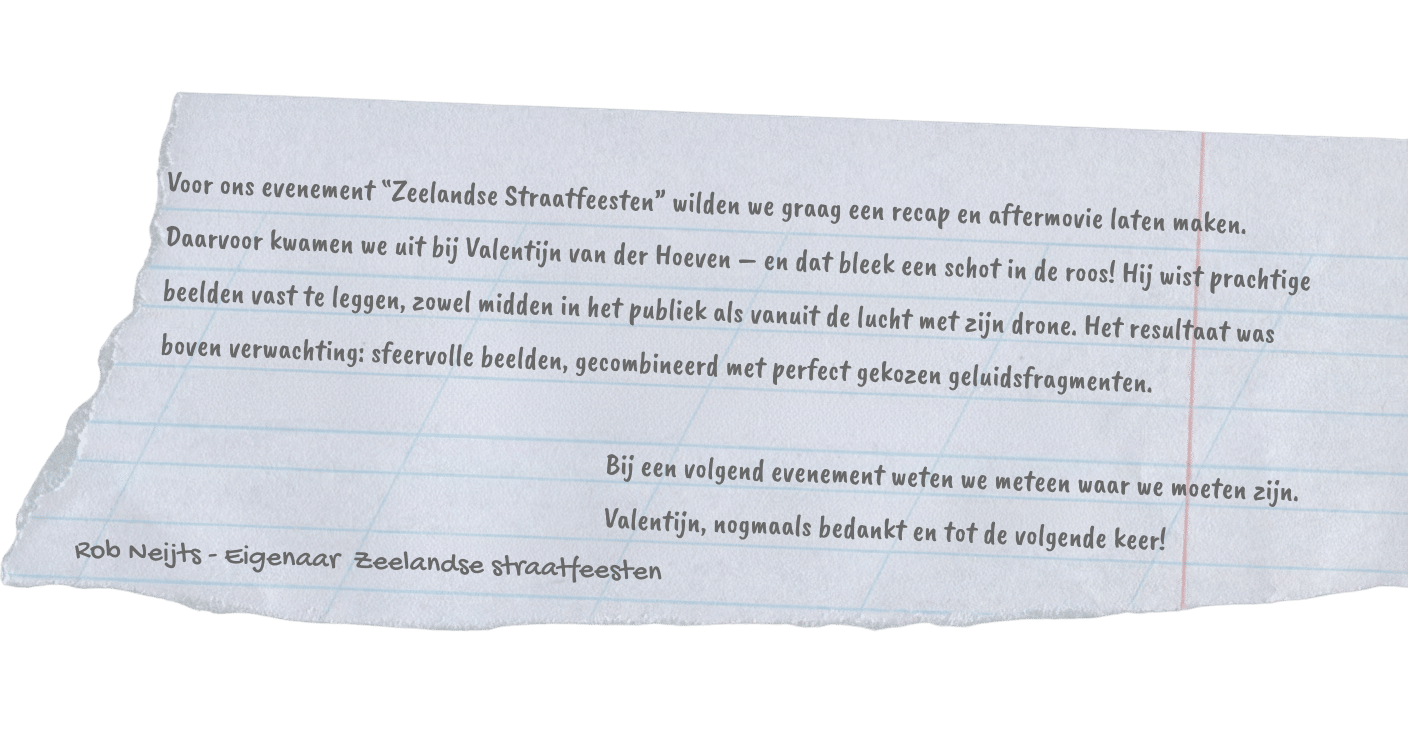 Voor ons evenement “Zeelandse Straatfeesten” wilden we graag een recap en aftermovie laten maken.
Daarvoor kwamen we uit bij Valentijn van der Hoeven – en dat bleek een schot in de roos! Hij wist prachtige
beelden vast te leggen, zowel midden in het publiek als vanuit de lucht met zijn drone. Het resultaat was
boven verwachting: sfeervolle beelden, gecombineerd met perfect gekozen geluidsfragmenten.
Bij een volgend evenement weten we meteen waar we moeten zijn.
Valentijn, nogmaals bedankt en tot de volgende keer!
Rob Neijts - Eigenaar Zeelandse straatfeesten